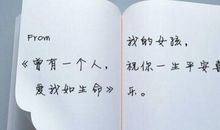 From
《曾有一个人，
爱我如生命》
我的女孩，
祝你一生平安喜
乐。